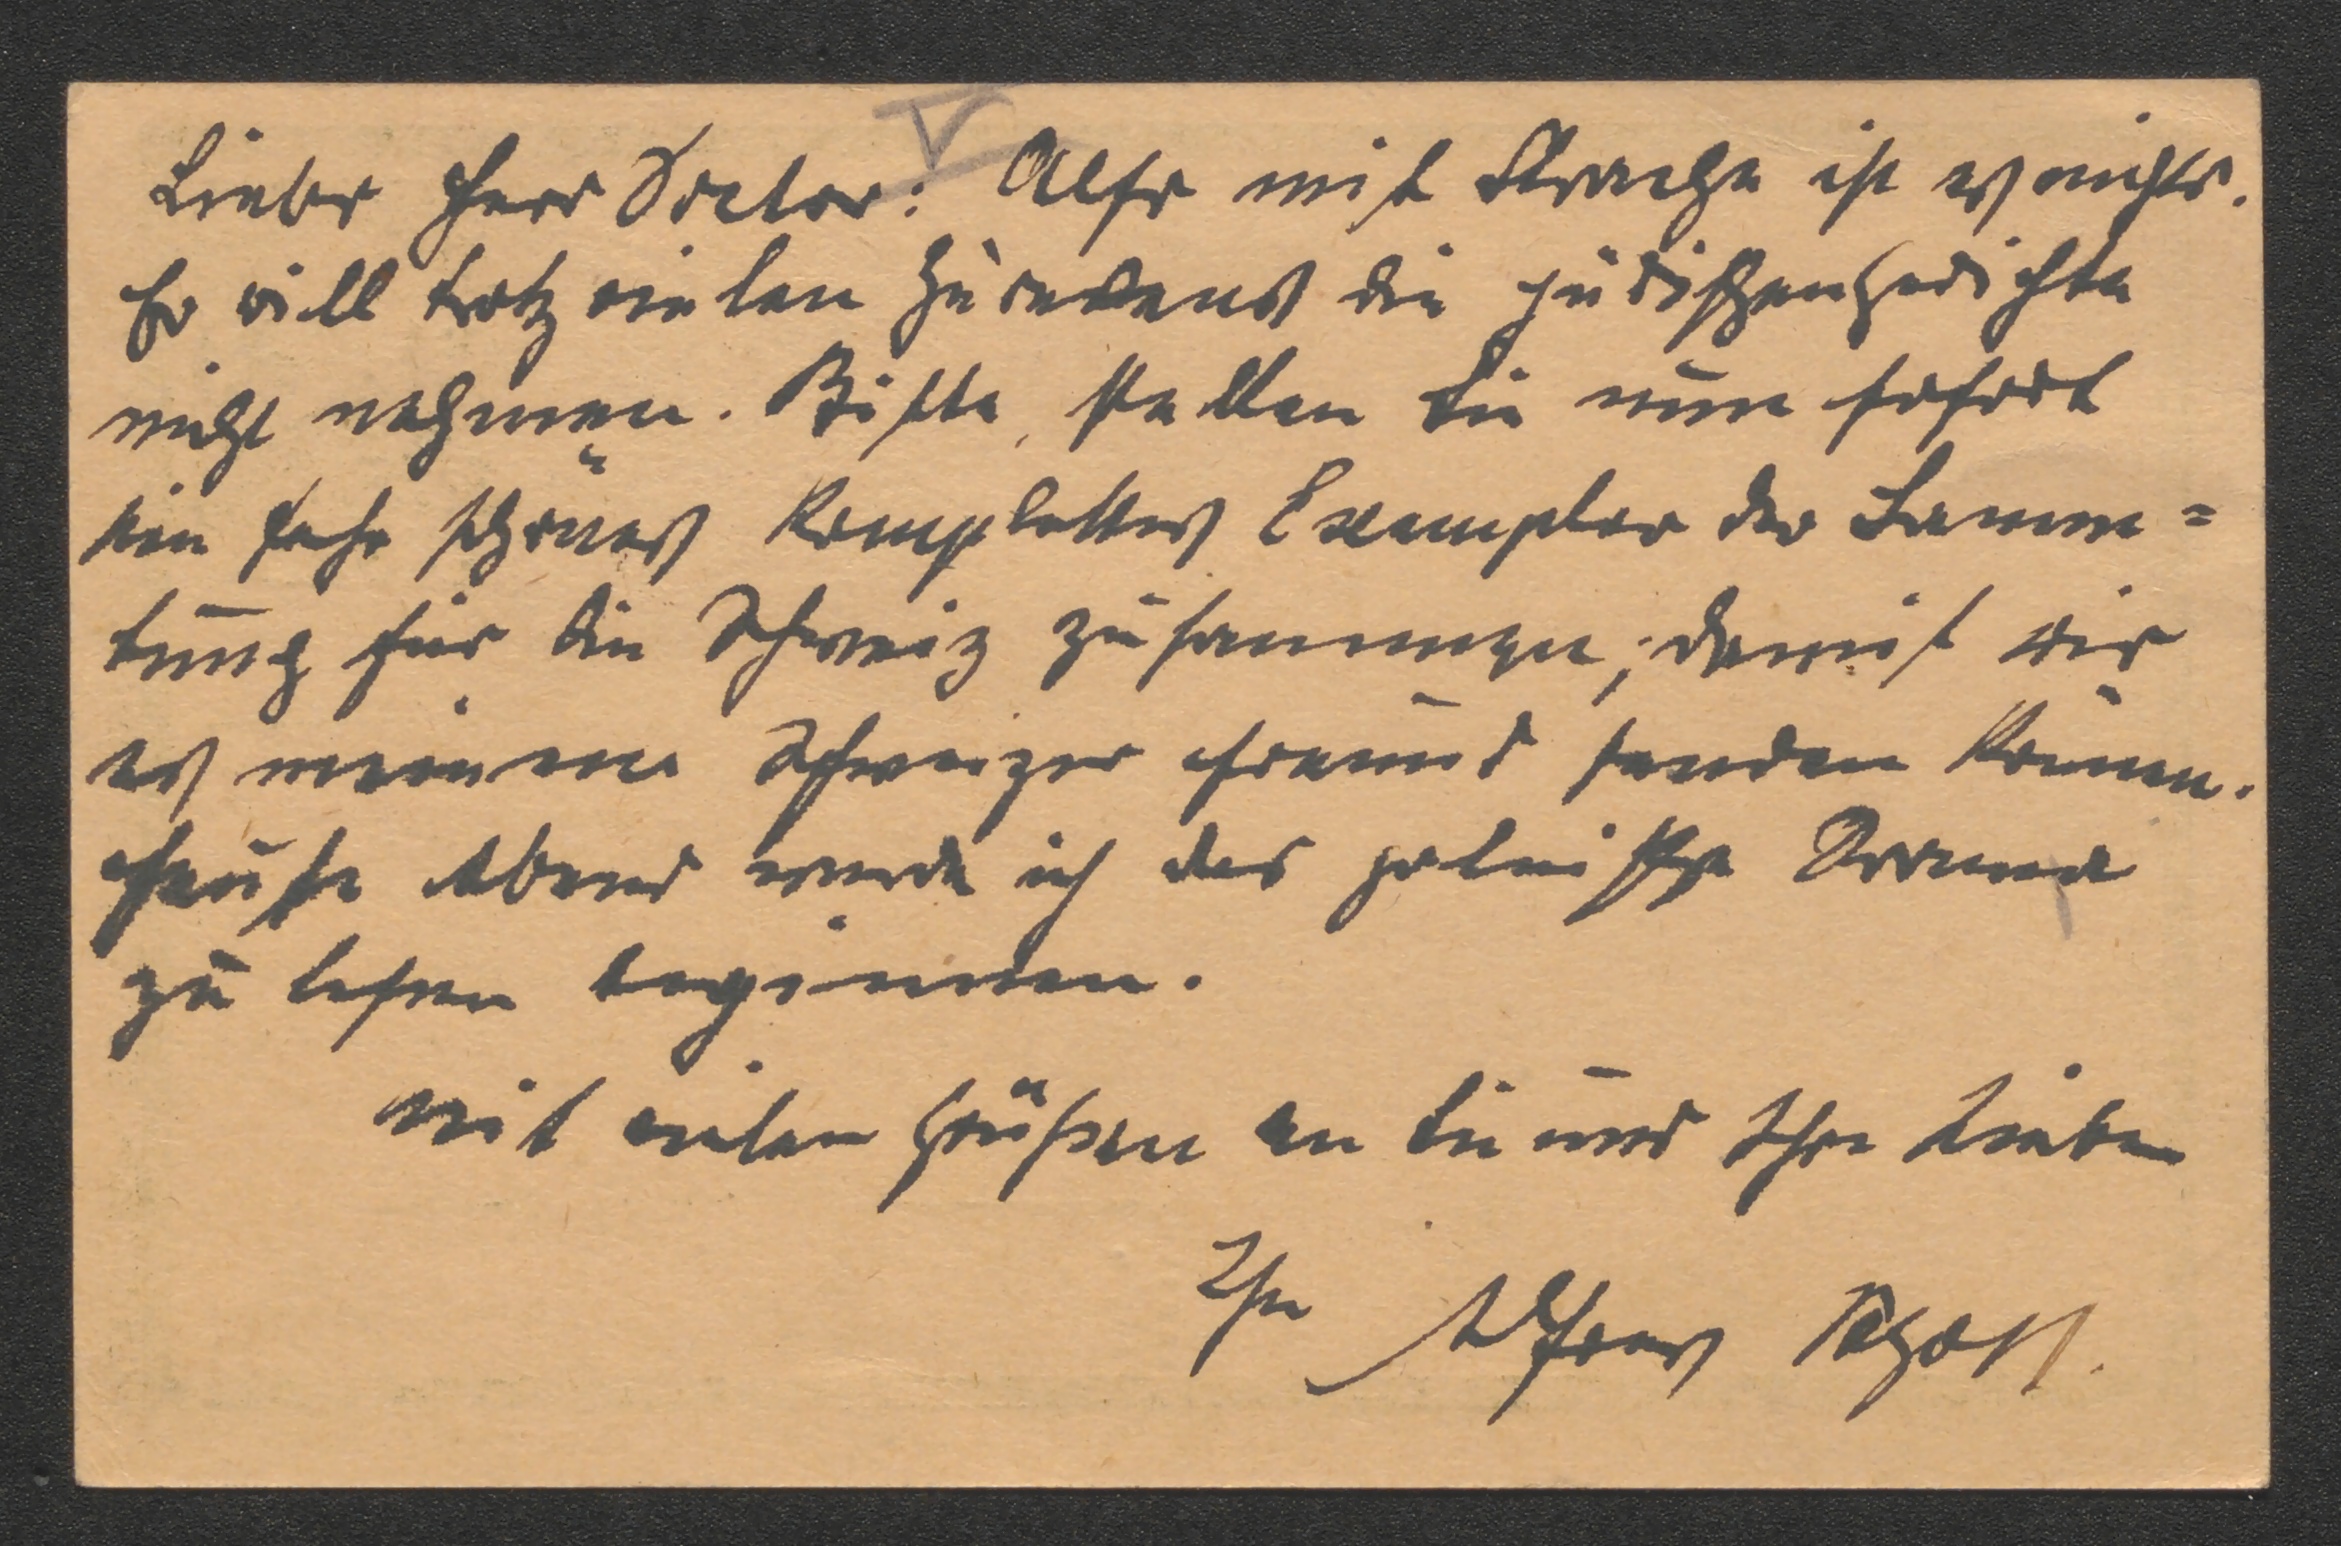 V
Lieber Herr Doctor: Also mit Strache ist es nichts.
Er will trotz vielen Zuredens die jüdischen Gedichte
nicht nehmen. Bitte, stellen Sie nun sofort
ein sehr schönes komplettes Exemplar der Samm=
lung für die Schweiz zusammen, damit wir
es meinem Schweizer Freund senden können.
Heute Abend werde ich das polnische Drama
zu lesen beginnen.
Mit vielen Grüßen an Sie und Ihre Lieben
Ihr Alfred